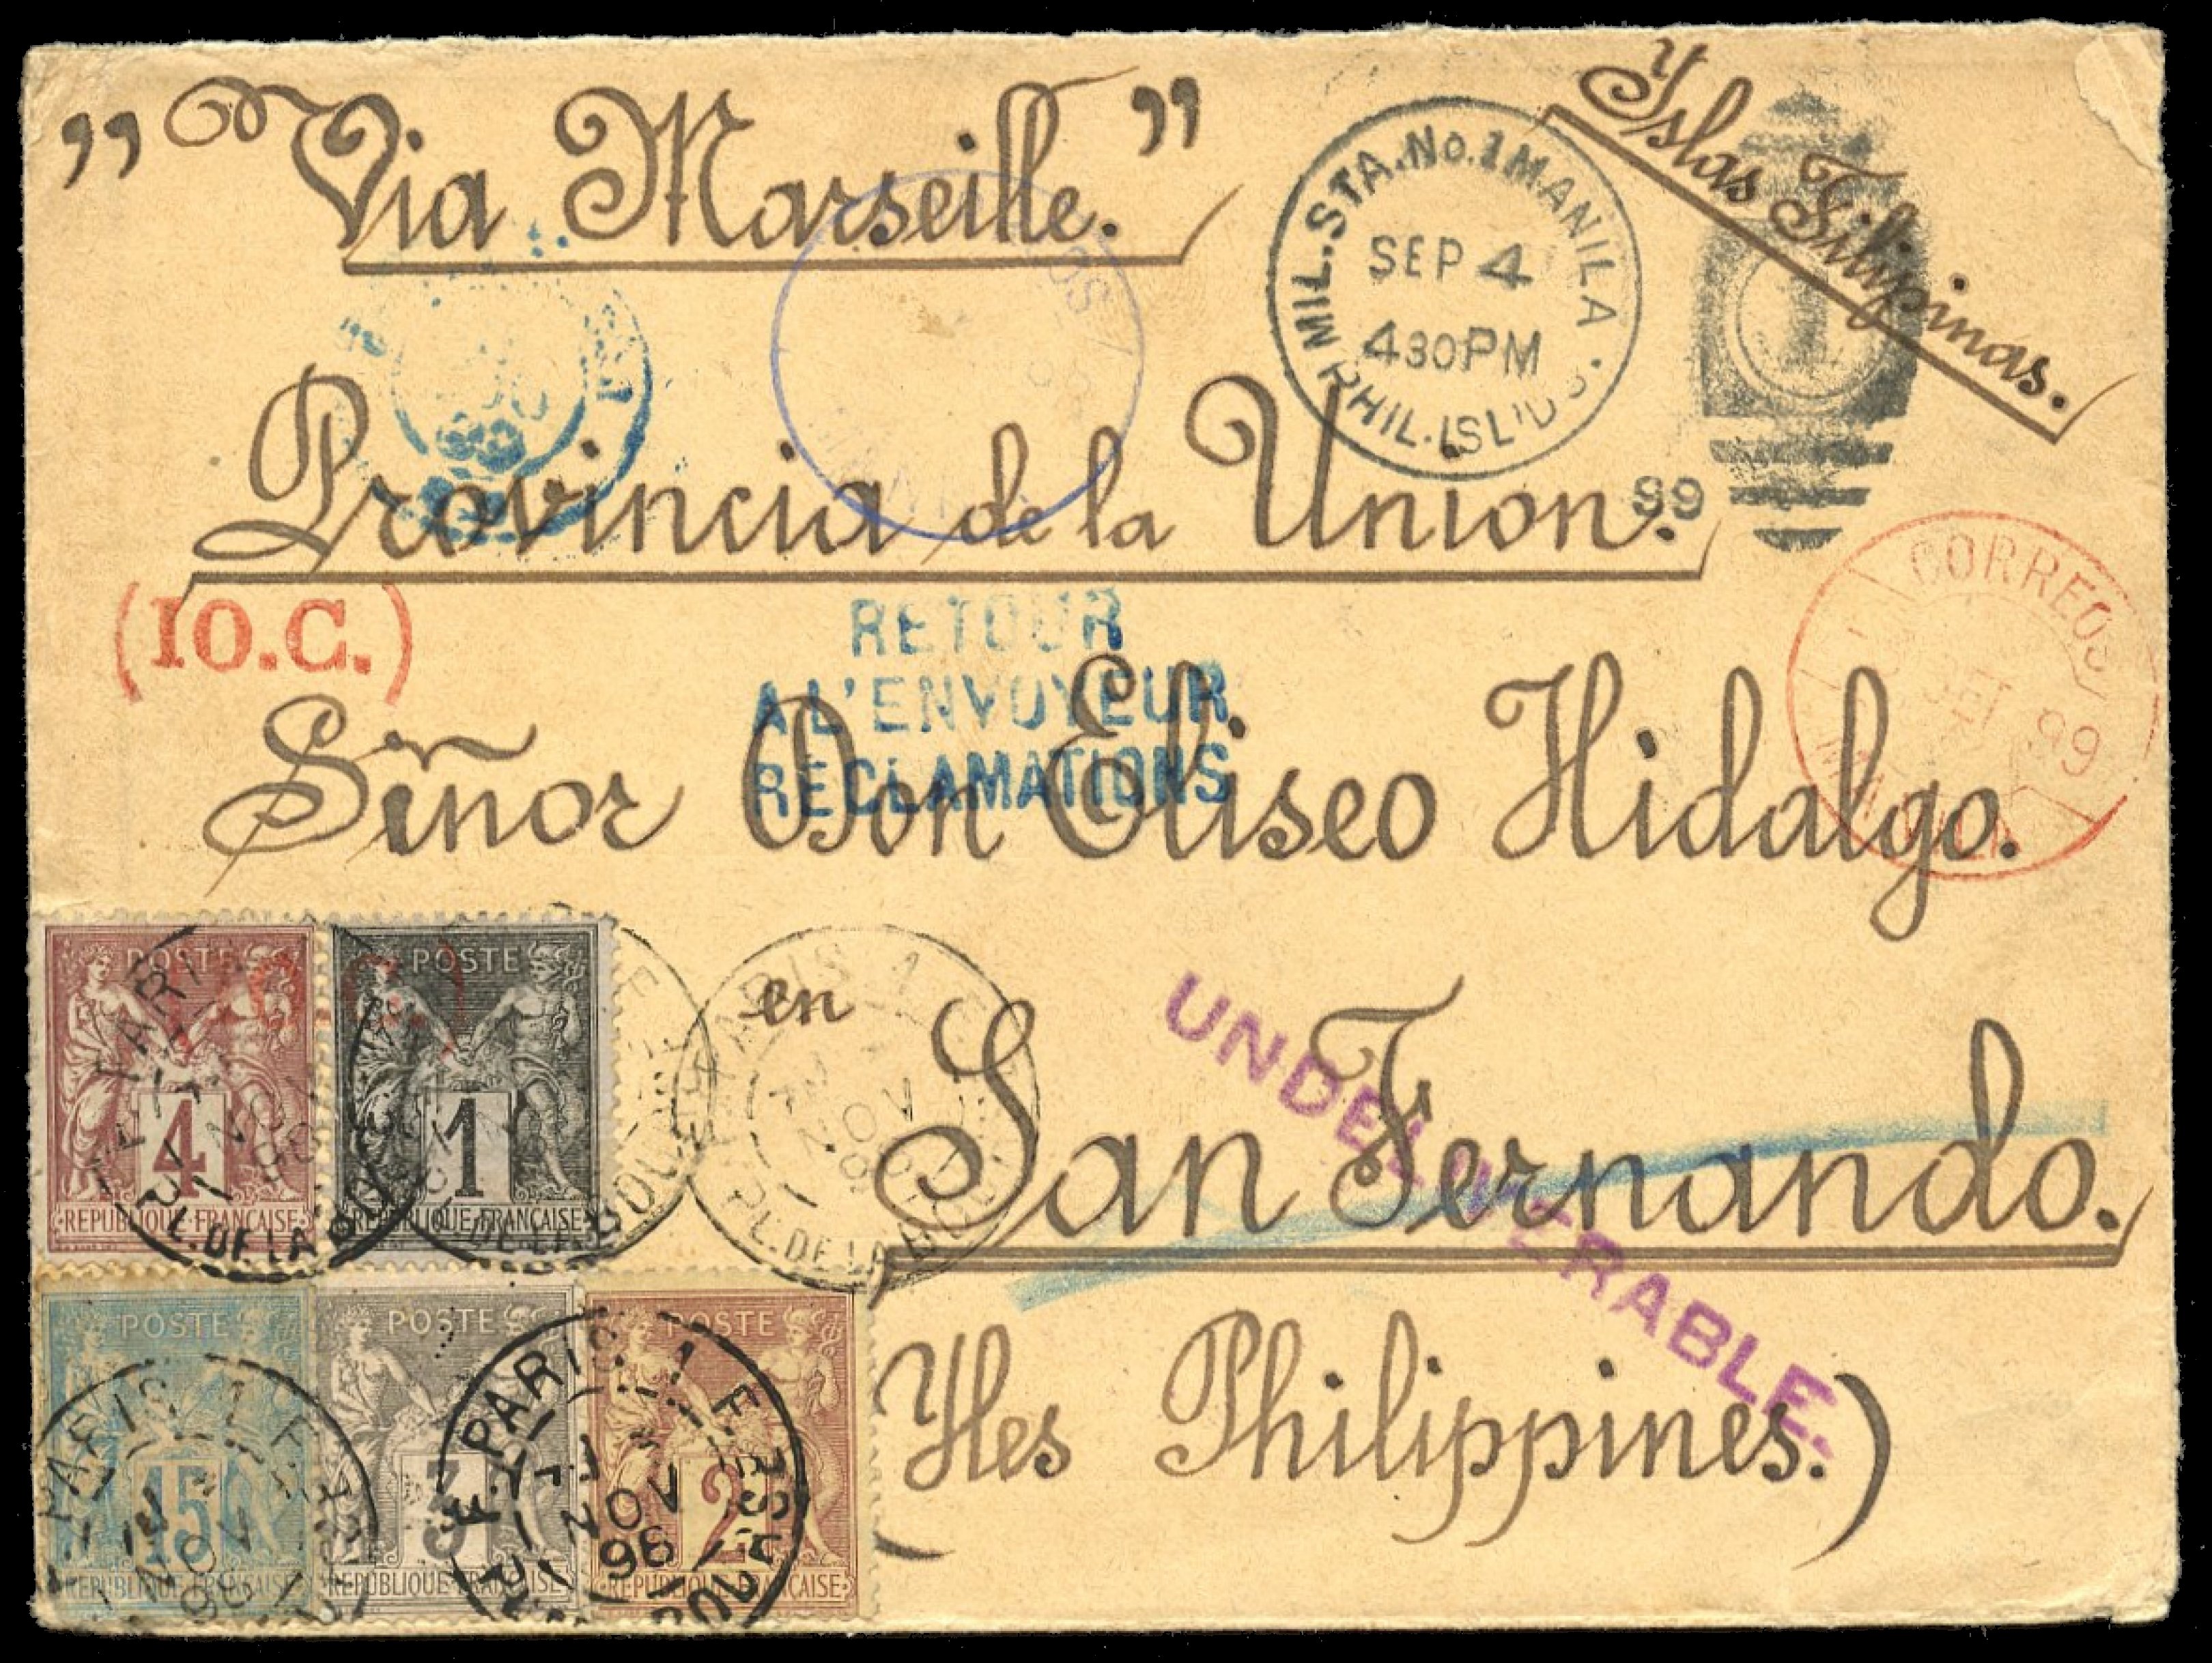 „ Via Marseille. ”
Islas Filipinas.
MIL. STA. No. 1 MANILA
SEP 4
430PM
PHIL. ISL'DS
99
Provincia de la Union.
(IO.C.)
CORREOS
99
RETOUR
A L'ENVOYEUR
RECLAMATIONS
Siñor Don Eliseo Hidalgo.
en
San Fernando.
UNDELIVERABLE.
(Yles Philippines.)
POSTE
4
REPUBLIQUE FRANÇAISE
POSTE
1
REPUBLIQUE FRANÇAISE
PARIS
NOV
PL. DE LA BOURSE
POSTE
15
REPUBLIQUE FRANÇAISE
POSTE
3
REPUBLIQUE FRANÇAISE
POSTE
2
REPUBLIQUE FRANÇAISE
PARIS 1
NOV
PARIS 1
NOV
96
BOURSE